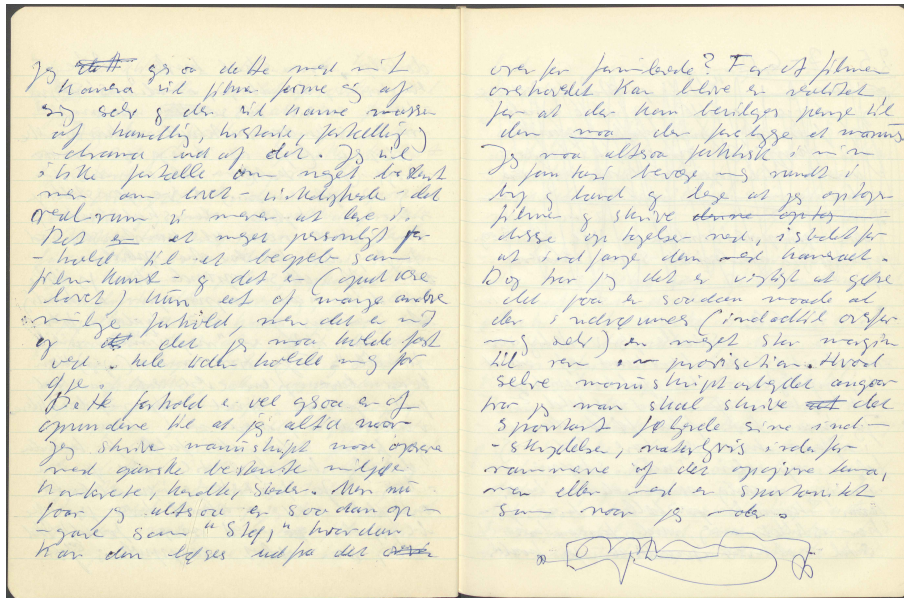 Jeg gør dette med mit
kamera vil filmen forme sig af
sig selv og der vil komme masser
af handling, historie, fortælling,
drama ud af det. Jeg vil
ikke fortælle om noget bestemt
men om livet - virkeligheden - det
real-rum vi mener at leve i.
Det er et meget personligt for-
-hold til et begreb som
film-kunst - og det er (opad
livet) kun eet af mange andre
mulige forhold, men det er mit
og det jeg maa holde fast
ved. hele tiden holde mig for
øje.
Dette forhold er vel ogsaa en af
grundene til at jeg altid naar
jeg skrive manuskript maa operere
med ganske bestemte miljøer
konkrete, kendte, steder. Men nu
faar jeg altsaa en saadan op-
-gave som "Slej," hvordan
kan den løses udfra det
overfor familiede? For at filmen
overhovedet kan blive en realitet,
for at der kan bevilges penge til
den maa der foreligge et manus
Jeg maa altsaa faktisk i min
fantasi bevæge mig rundt i
by og land og lege at jeg optager
filmen og skrive denne optag
disse optagelser ned, istedet for
at indfange dem med kameraet.
Dog tror jeg det er vigtigt at gøre
det paa en saadan maade at
der indrømmes (indadtil overfor
mig selv) en meget stor margin
til ren improvisation. Hvad
selve manuskriptarbejdet angaar
tror jeg man skal skrive det
spontant følgende sine ind-
-skydelser, naturligvis indenfor
rammerne af det opgivne tema,
men ellers med en spontanitet
som naar jeg